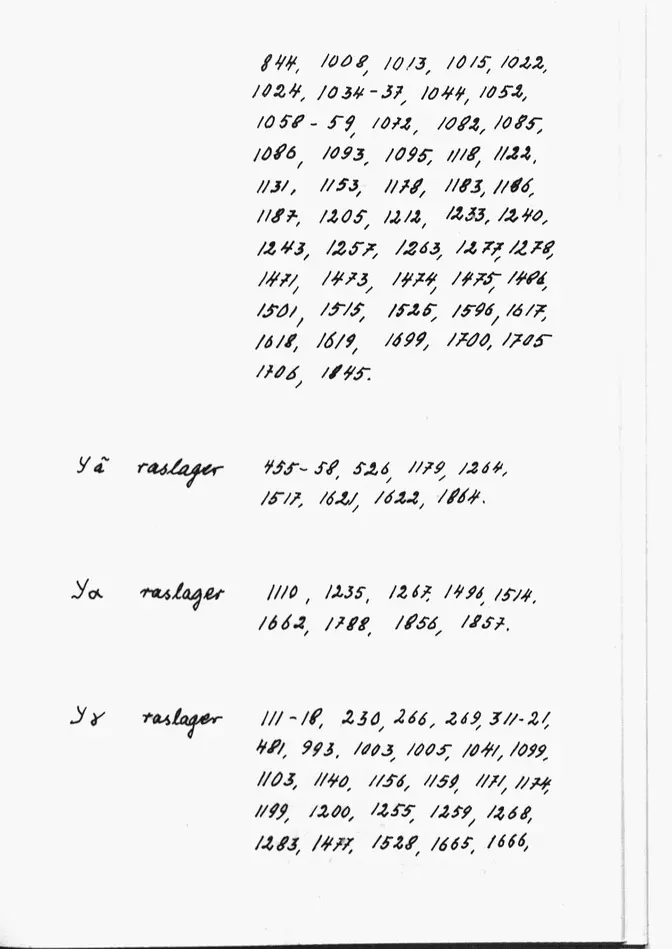 844, 1008, 1013, 1015, 1022,
1024, 1034-37, 1044, 1052,
1058-59, 1072, 1082, 1085,
1086, 1093, 1095, 1118, 1122,
1131, 1153, 1178, 1183, 1186,
1187, 1205, 1212, 1233, 1240,
1243, 1257, 1263, 1277, 1278,
1471, 1473, 1474, 1475, 1486,
1501, 1515, 1525, 1596, 1617,
1618, 1619, 1699, 1700, 1705
1706, 1845.
Yã raslager 455-58, 526, 1179, 1264,
1517, 1621, 1622, 1864.
Yα raslager 1110, 1235, 1267, 1496, 1514,
1662, 1788, 1856, 1857.
Yɣ raslager 111-18, 230, 266, 269, 311-21,
481, 993, 1003, 1005, 1041, 1099,
1103, 1140, 1156, 1159, 1171, 1174,
1199, 1200, 1255, 1259, 1268,
1283, 1477, 1528, 1665, 1666,